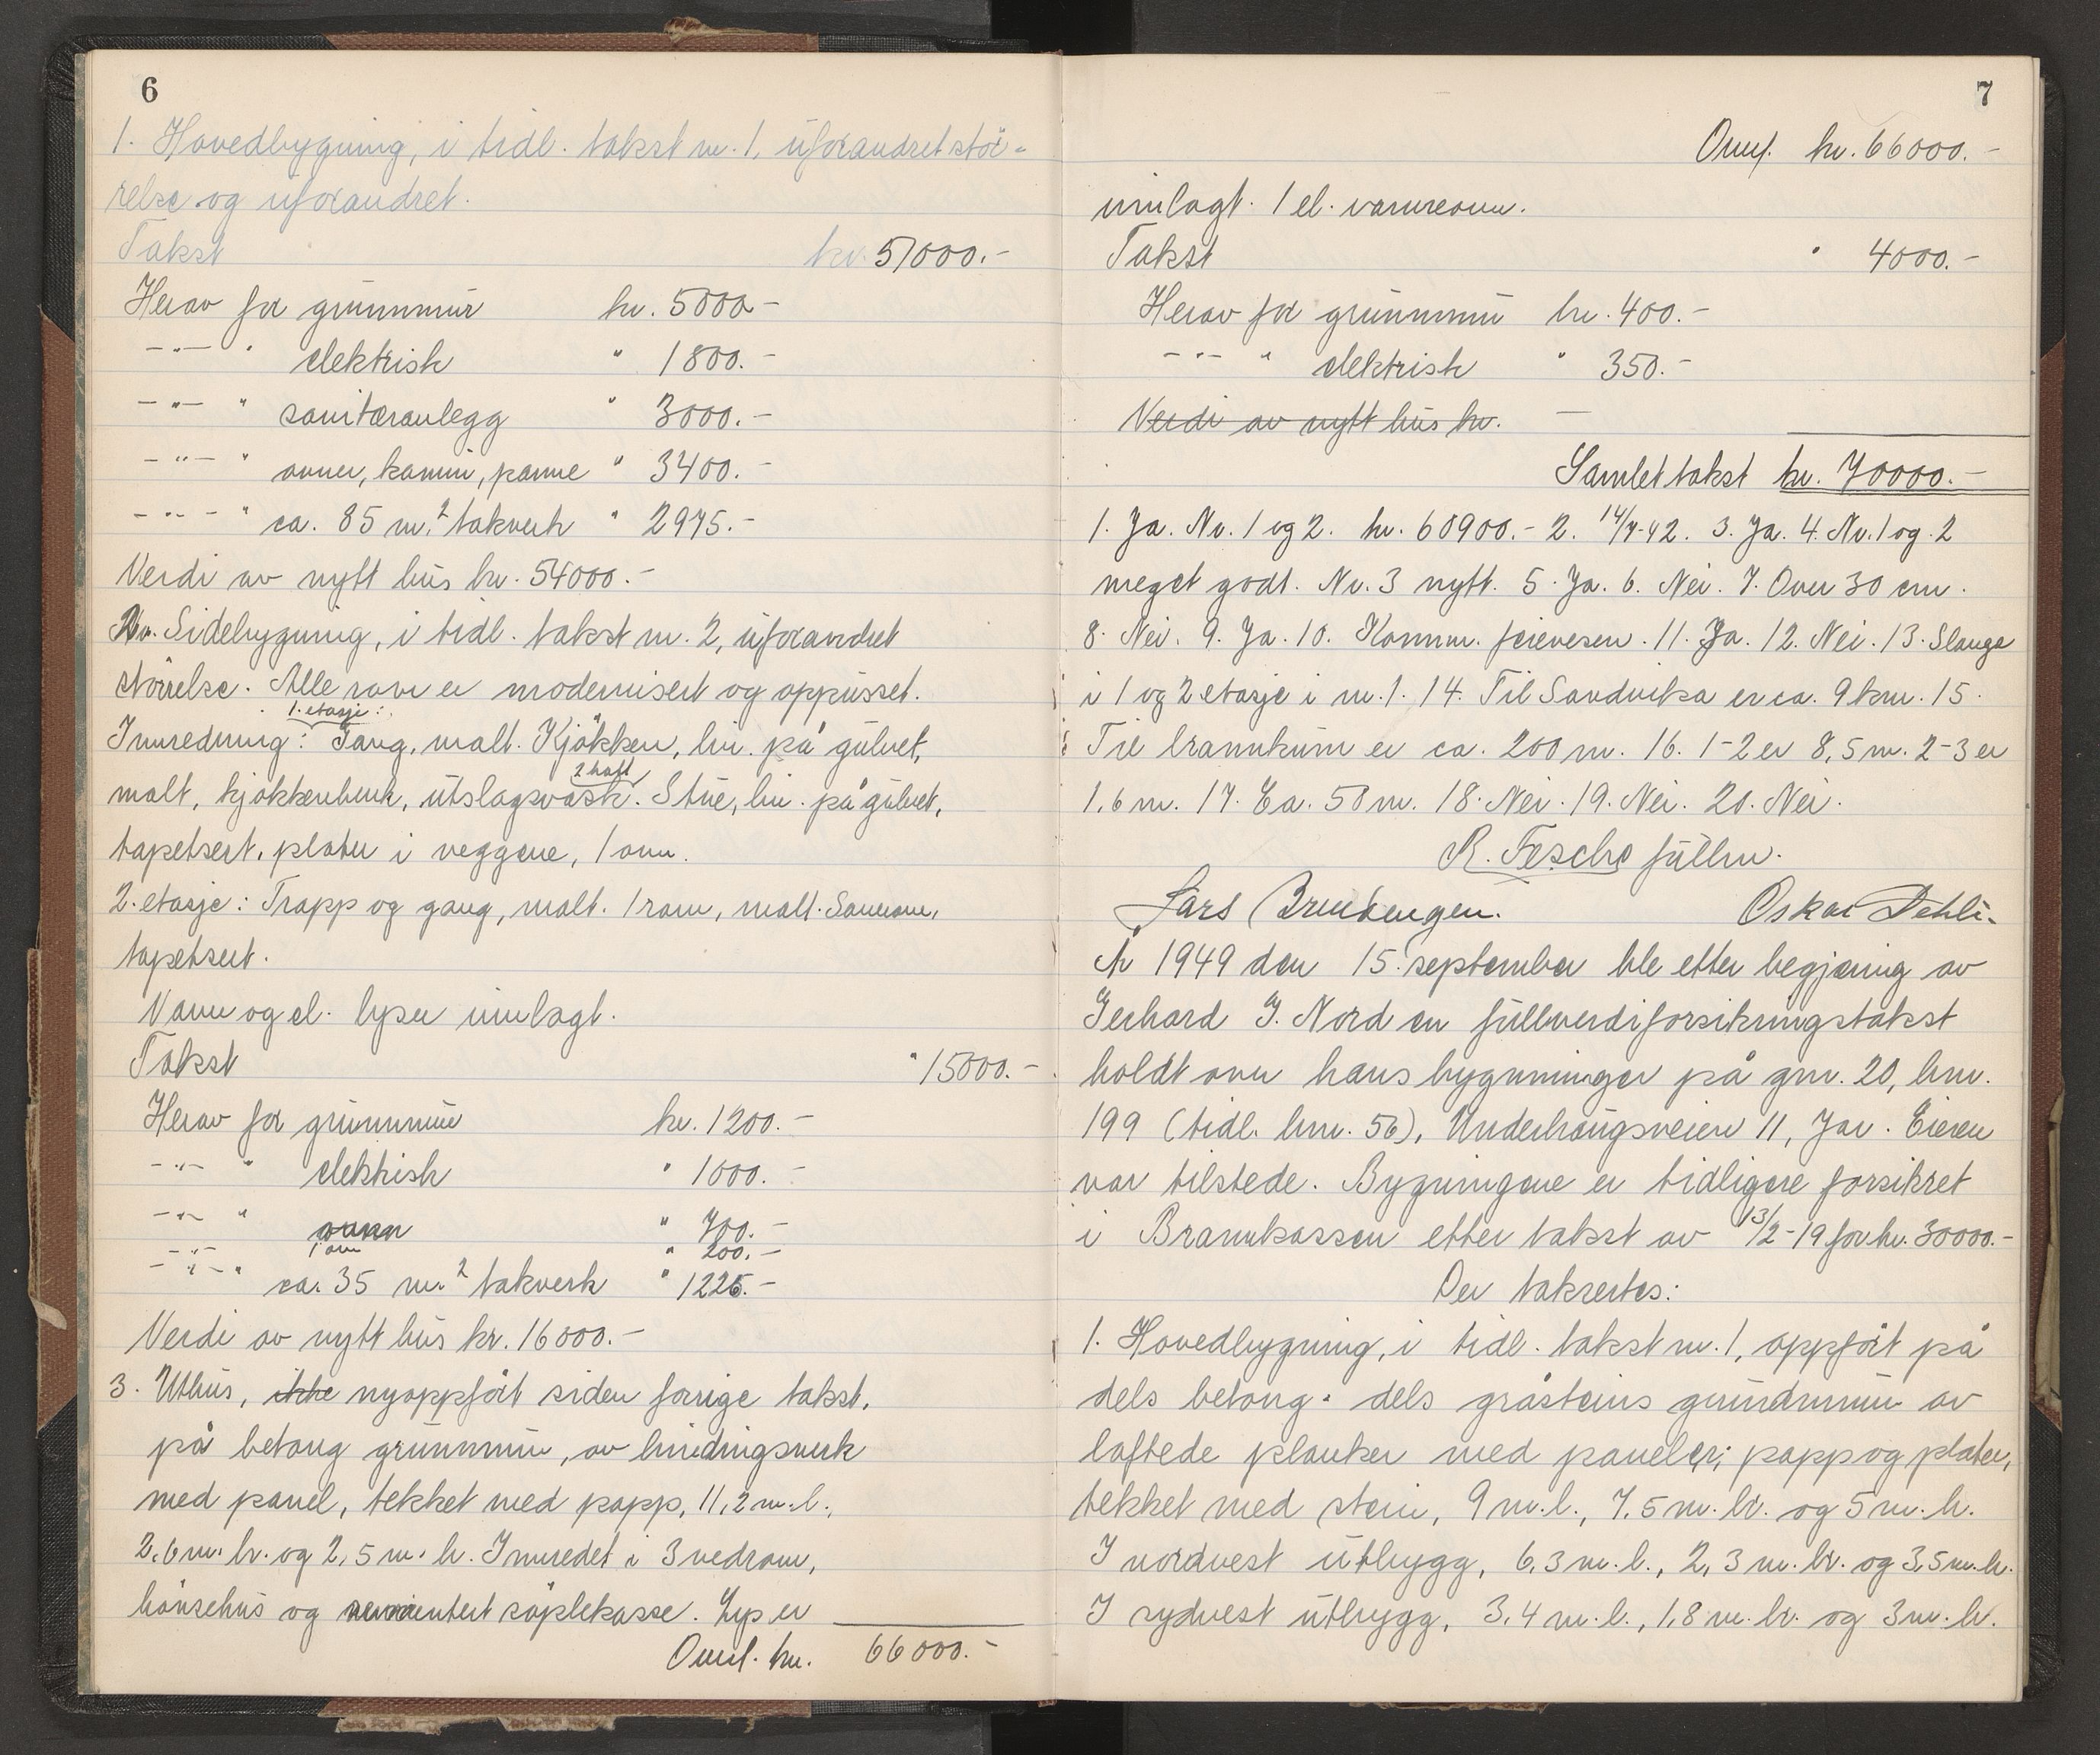 6
1. Hovedbygning, i tidl. takst nr. 1, uforandret stør-
relse og uforandret.
Takst kr. 51000.-
Herav for grunnmur kr. 5000-
-"- " elektrisk " 1800.-
-"- " sanitæranlegg " 3000.-
-"- " ovner, kamin, panne " 3400.-
-"- " ca. 85 m.² takverk " 2975.-
Verdi av nytt hus kr. 54000.-
2. Sidebygning, i tidl. takst nr. 2, uforandret
størrelse. Alle rom er modernisert og oppusset.
1. etasje:
Innredning: Gang, malt. Kjøkken, lin. på gulvet,
2 hoft
malt, kjøkkenbenk, utslagsvask. Stue, lin. på gulvet,
tapetsert, plater i veggene, 1 ovn.
2. etasje: Trapp og gang, malt. 1 rom, malt. Soverom,
tapetsert.
Vann og el. lyser innlagt.
Takst " 15000.-
Herav for grunnmur kr. 1200.-
-"- " elektrisk " 1000.-
-"- " ovnen " 700.-
-"- 1 ovn " 200.-
-"- " ca. 35 m.² takverk " 1225.-
Verdi av nytt hus kr. 16000.-
3. Uthus, ikke nyoppført siden forrige takst,
på betong grunnmur, av bindingsverk
med panel, tekket med papp, 11,2 m. l.,
2,6 m. br. og 2,5 m. h. Innredet i 3 vedrom,
hønsehus og sementert søplekasse. Lys er
Overf. kr. 66000.-
7
Overf. kr. 66000.-
innlagt. 1 el. varmeovn.
Takst " 4000.-
Herav for grunnmur kr. 400.-
-"- " elektrisk " 350.-
Verdi av nytt hus kr. —
Samlet takst kr. 70000.-
1. Ja. Nr. 1 og 2. kr. 60900.- 2. 14/7-42. 3. Ja. 4. Nr. 1 og 2
meget godt. Nr. 3 nytt. 5. Ja. 6. Nei. 7. Over 30 cm.
8. Nei. 9. Ja. 10. Komm. feievesen. 11. Ja. 12. Nei. 13. Slange
i 1 og 2 etasje i nr. 1. 14. Til Sandvika er ca. 9 km. 15.
Til brannkum er ca. 200 m. 16. 1-2 er 8,5 m. 2-3 er
1,6 m. 17. Ca. 50 m. 18. Nei. 19. Nei. 20. Nei.
R. Fesche fullm.
Lars Brubengen. Oskar Dehli.
År 1949 den 15. september ble etter begjæring av
Gerhard J. Nord en fullverdiforsikringstakst
holdt over hans bygninger på gnr. 20, bnr.
199 (tidl. bnr. 56), Underhaugsveien 11, Jar. Eieren
var tilstede. Bygningene er tidligere forsikret
i Brannkassen etter takst av 13/2-19 for kr. 30000.-
Der taksertes:
1. Hovedbygning, i tidl. takst nr. 1, oppført på
dels betong- dels gråsteins grundmur av
laftede planker med paneler, papp og plater,
tekket med stein, 9 m. l., 7,5 m. br. og 5 m. h.
I nordvest utbygg, 6,3 m. l., 2,3 m. br. og 3,5 m. h.
I sydvest utbygg, 3,4 m. l., 1,8 m. br. og 3 m. h.